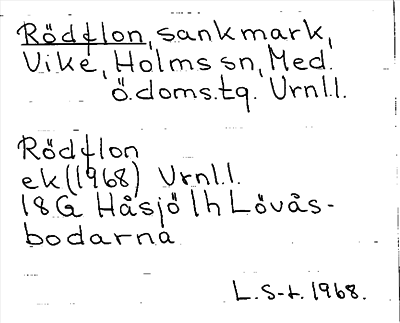 Rödflon, sankmark,
Vike, Holms sn, Med.
Ö. doms.tg. Vrnl.l.
Rödflon
ek (1968) Vrnl.l.
18G Håsjö lh Lövås-
bodarna
L.S-t. 1968.